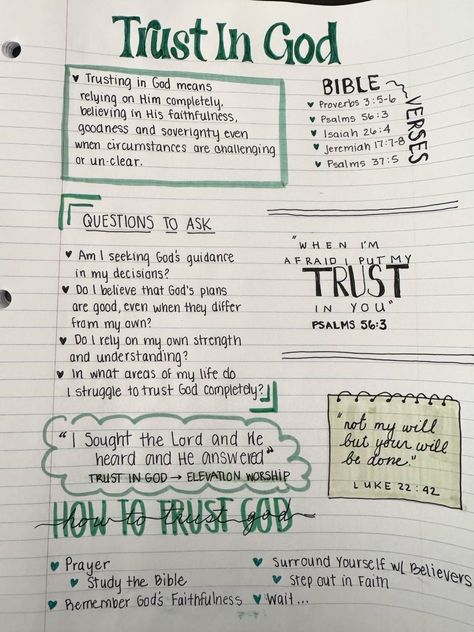 Trust In God
Trusting in God means
relying on Him completely,
believing in His faithfulness,
goodness and soverignty even
when circumstances are challenging
or un-clear.
BIBLE
VERSES
Proverbs 3:5-6
Psalms 56:3
Isaiah 26:4
Jeremiah 17:7-8
Psalms 37:5
QUESTIONS TO ASK
Am I seeking God's guidance
in my decisions?
Do I believe that God's plans
are good, even when they differ
from my own?
Do I rely on my own strength
and understanding?
In what areas of my life do
I struggle to trust God completely?
"WHEN I'M
AFRAID I PUT MY
TRUST
IN YOU"
PSALMS 56:3
"I Sought the Lord and He
heard and He answered"
TRUST IN GOD → ELEVATION WORSHIP
"not my will
but your will
be done."
LUKE 22:42
HOW TO TRUST GOD
Prayer
Study the Bible
Remember God's Faithfulness
Surround Yourself w/ Believers
Step out in Faith
Wait...